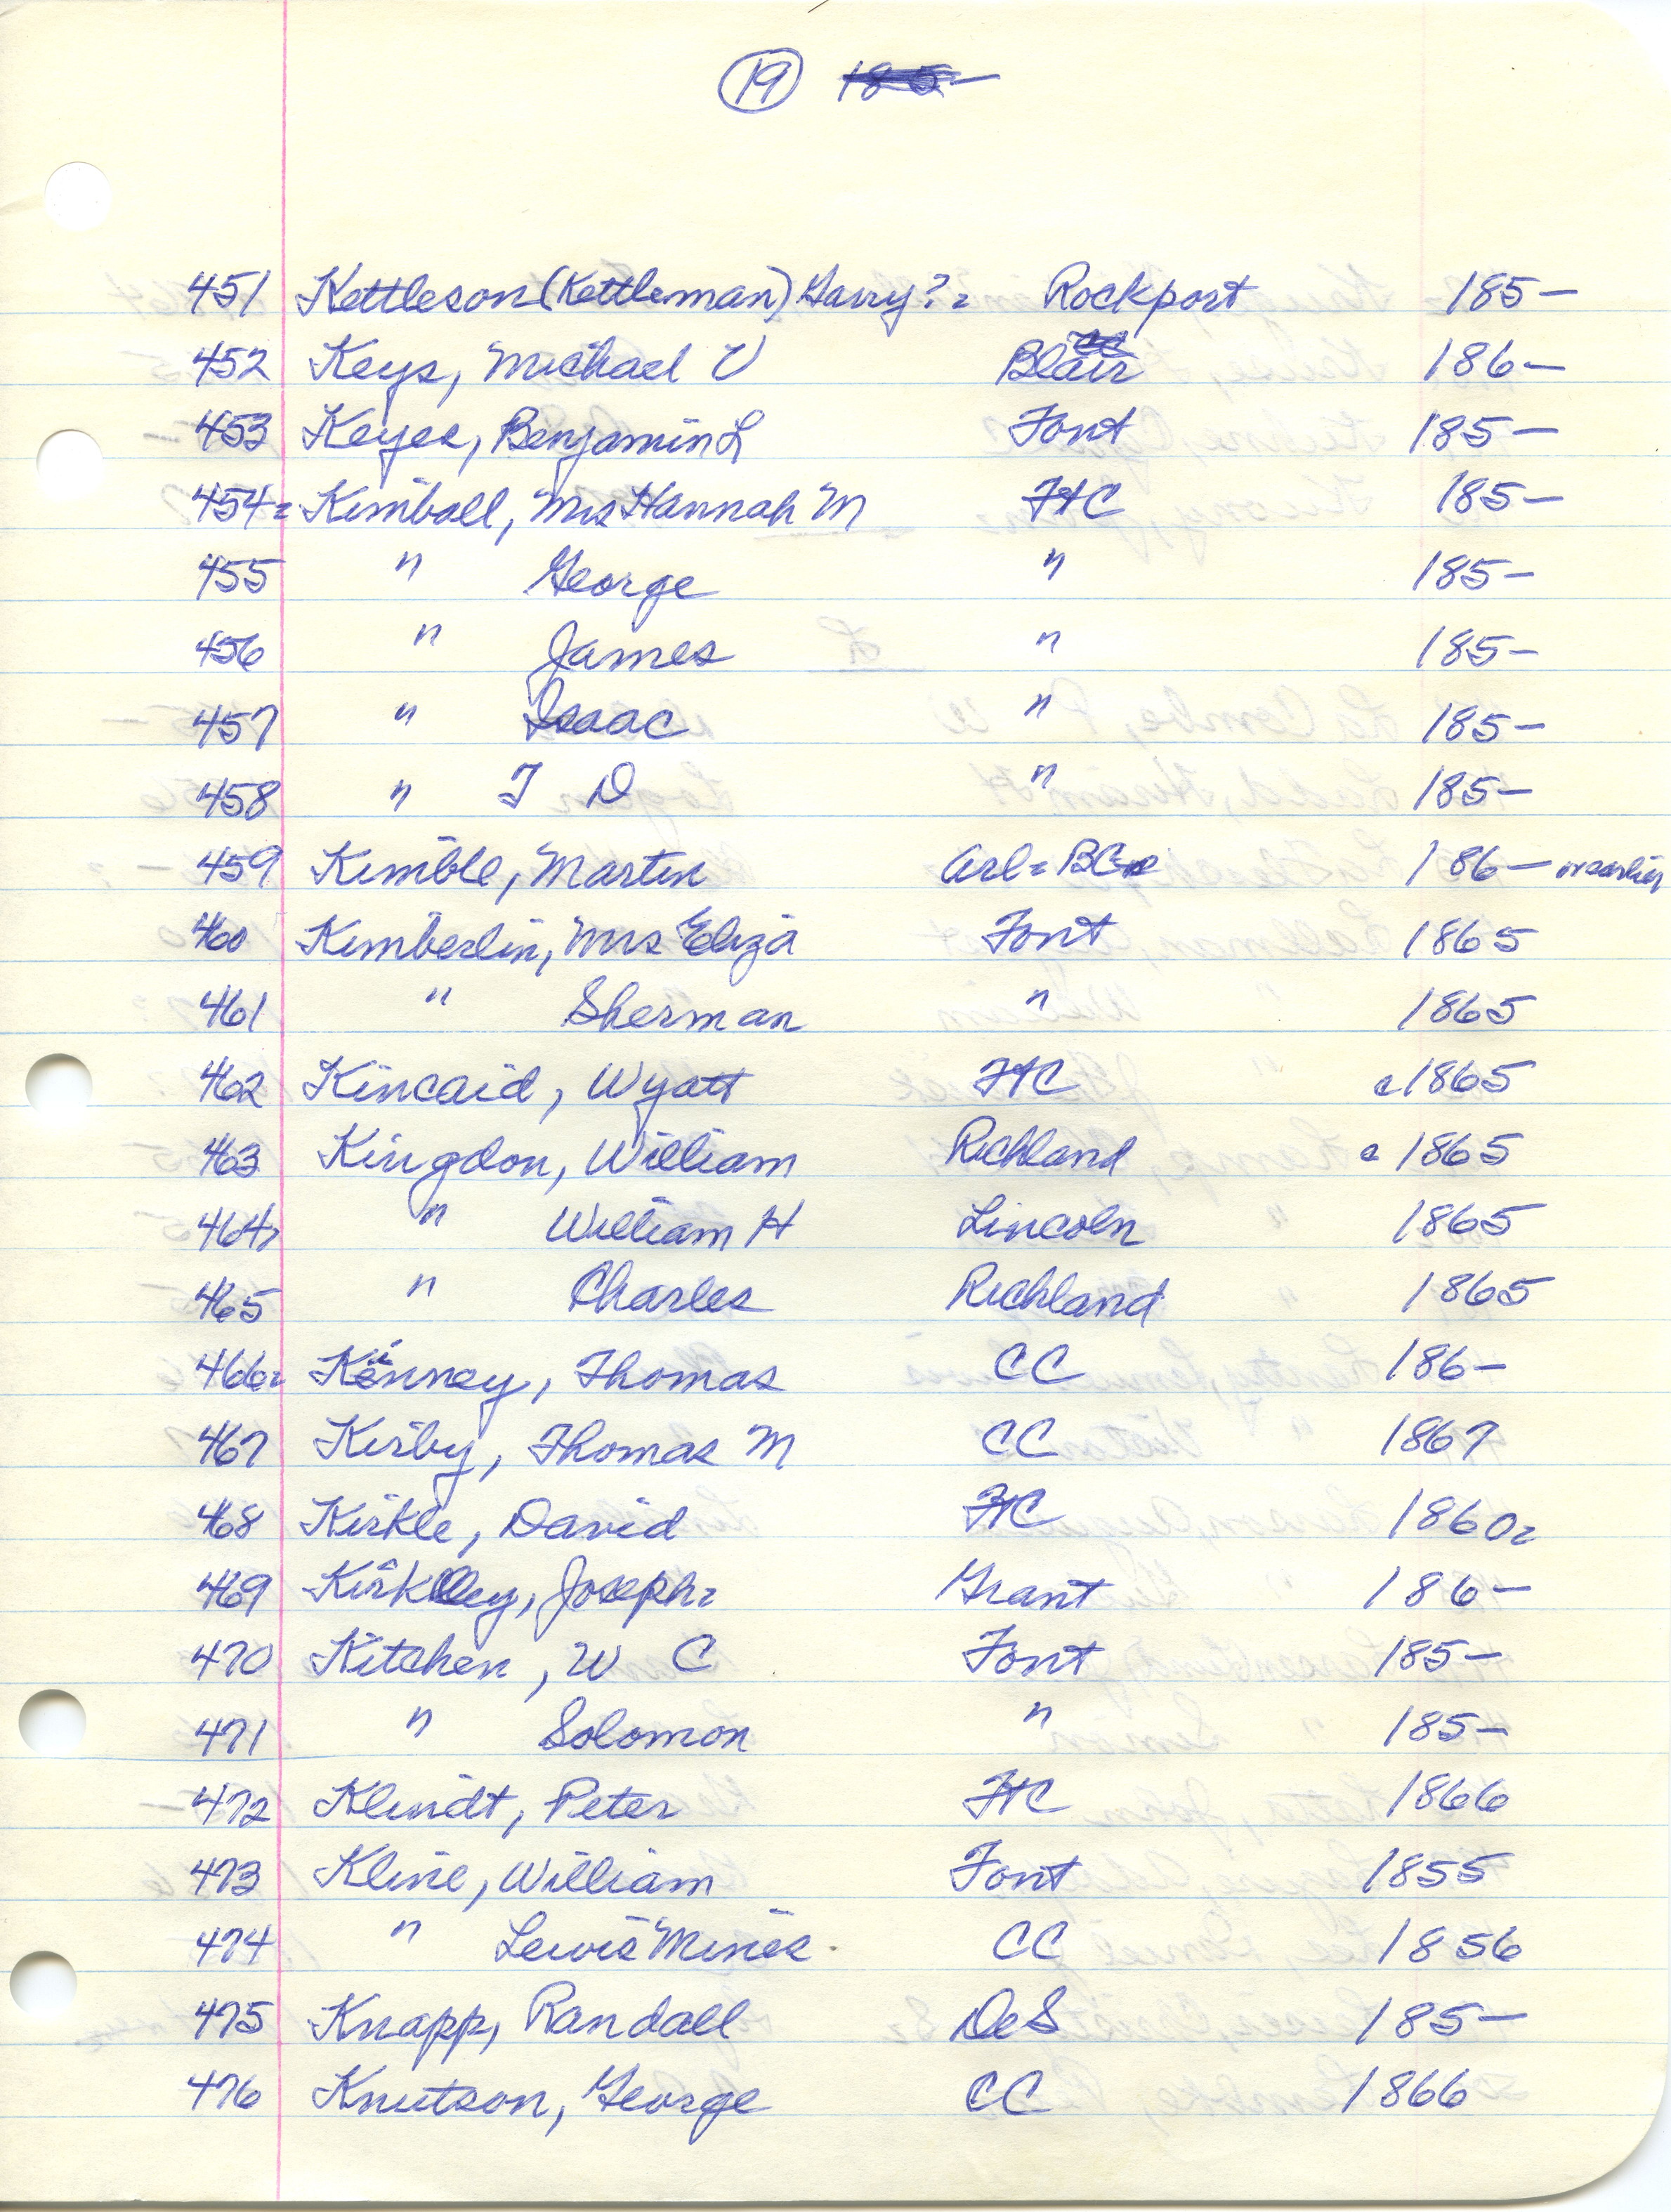 19 185-
451 Kettleson (Kettleman) Harry? Rockport 185-
452 Keys, Michael V Blair 186-
453 Keyes, Benjamin L Font 185-
454 Kimball, Mrs Hannah M FtC 185-
455 " George " 185-
456 " James " 185-
457 " Isaac " 185-
458 " T D " 185-
459 Kimble, Martin Arl = BC 186- or earlier
460 Kimberlin, Mrs Eliza Font 1865
461 " Sherman " 1865
462 Kincaid, Wyatt FtC c1865
463 Kingdon, William Richland c 1865
464 " William H Lincoln 1865
465 " Charles Richland 1865
466 Kenney, Thomas CC 186-
467 Kirby, Thomas M CC 1867
468 Kirkle, David FtC 1860
469 Kirkley, Joseph Grant 186-
470 Kitchen, W C Font 185-
471 " Solomon " 185-
472 Klindt, Peter FtC 1866
473 Kline, William Font 1855
474 " Lewis Mines CC 1856
475 Knapp, Randall DeS 185-
476 Knutson, George CC 1866